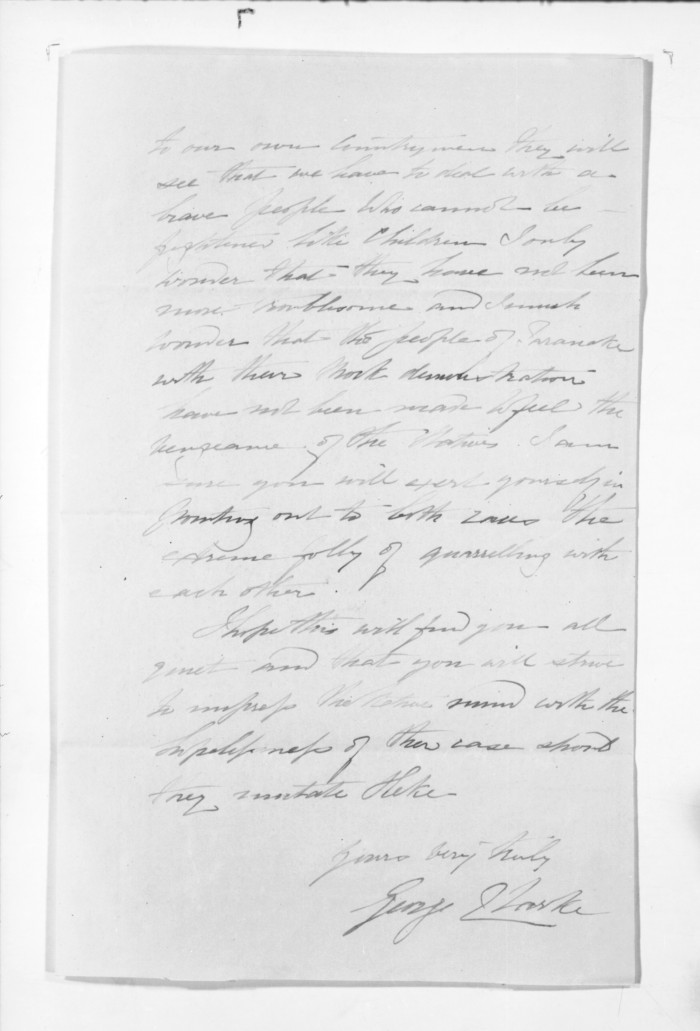 to our own Countrymen they will
see that we have to deal with a
brave people who cannot be
frightened like Children I only
wonder that they have not been
more troublesome and I much
wonder that the people of Taranake
with their Mock demonstration
have not been made to feel the
vengeance of the Natives. I am
sure you will exert yourself in
pointing out to both races the
extreme folly of quarrelling with
each other.
I hope this will find you all
quiet and that you will strive
to impress the Native mind with the
hopelessness of their case should
they imitate Heke
Yours very truly
George Clarke